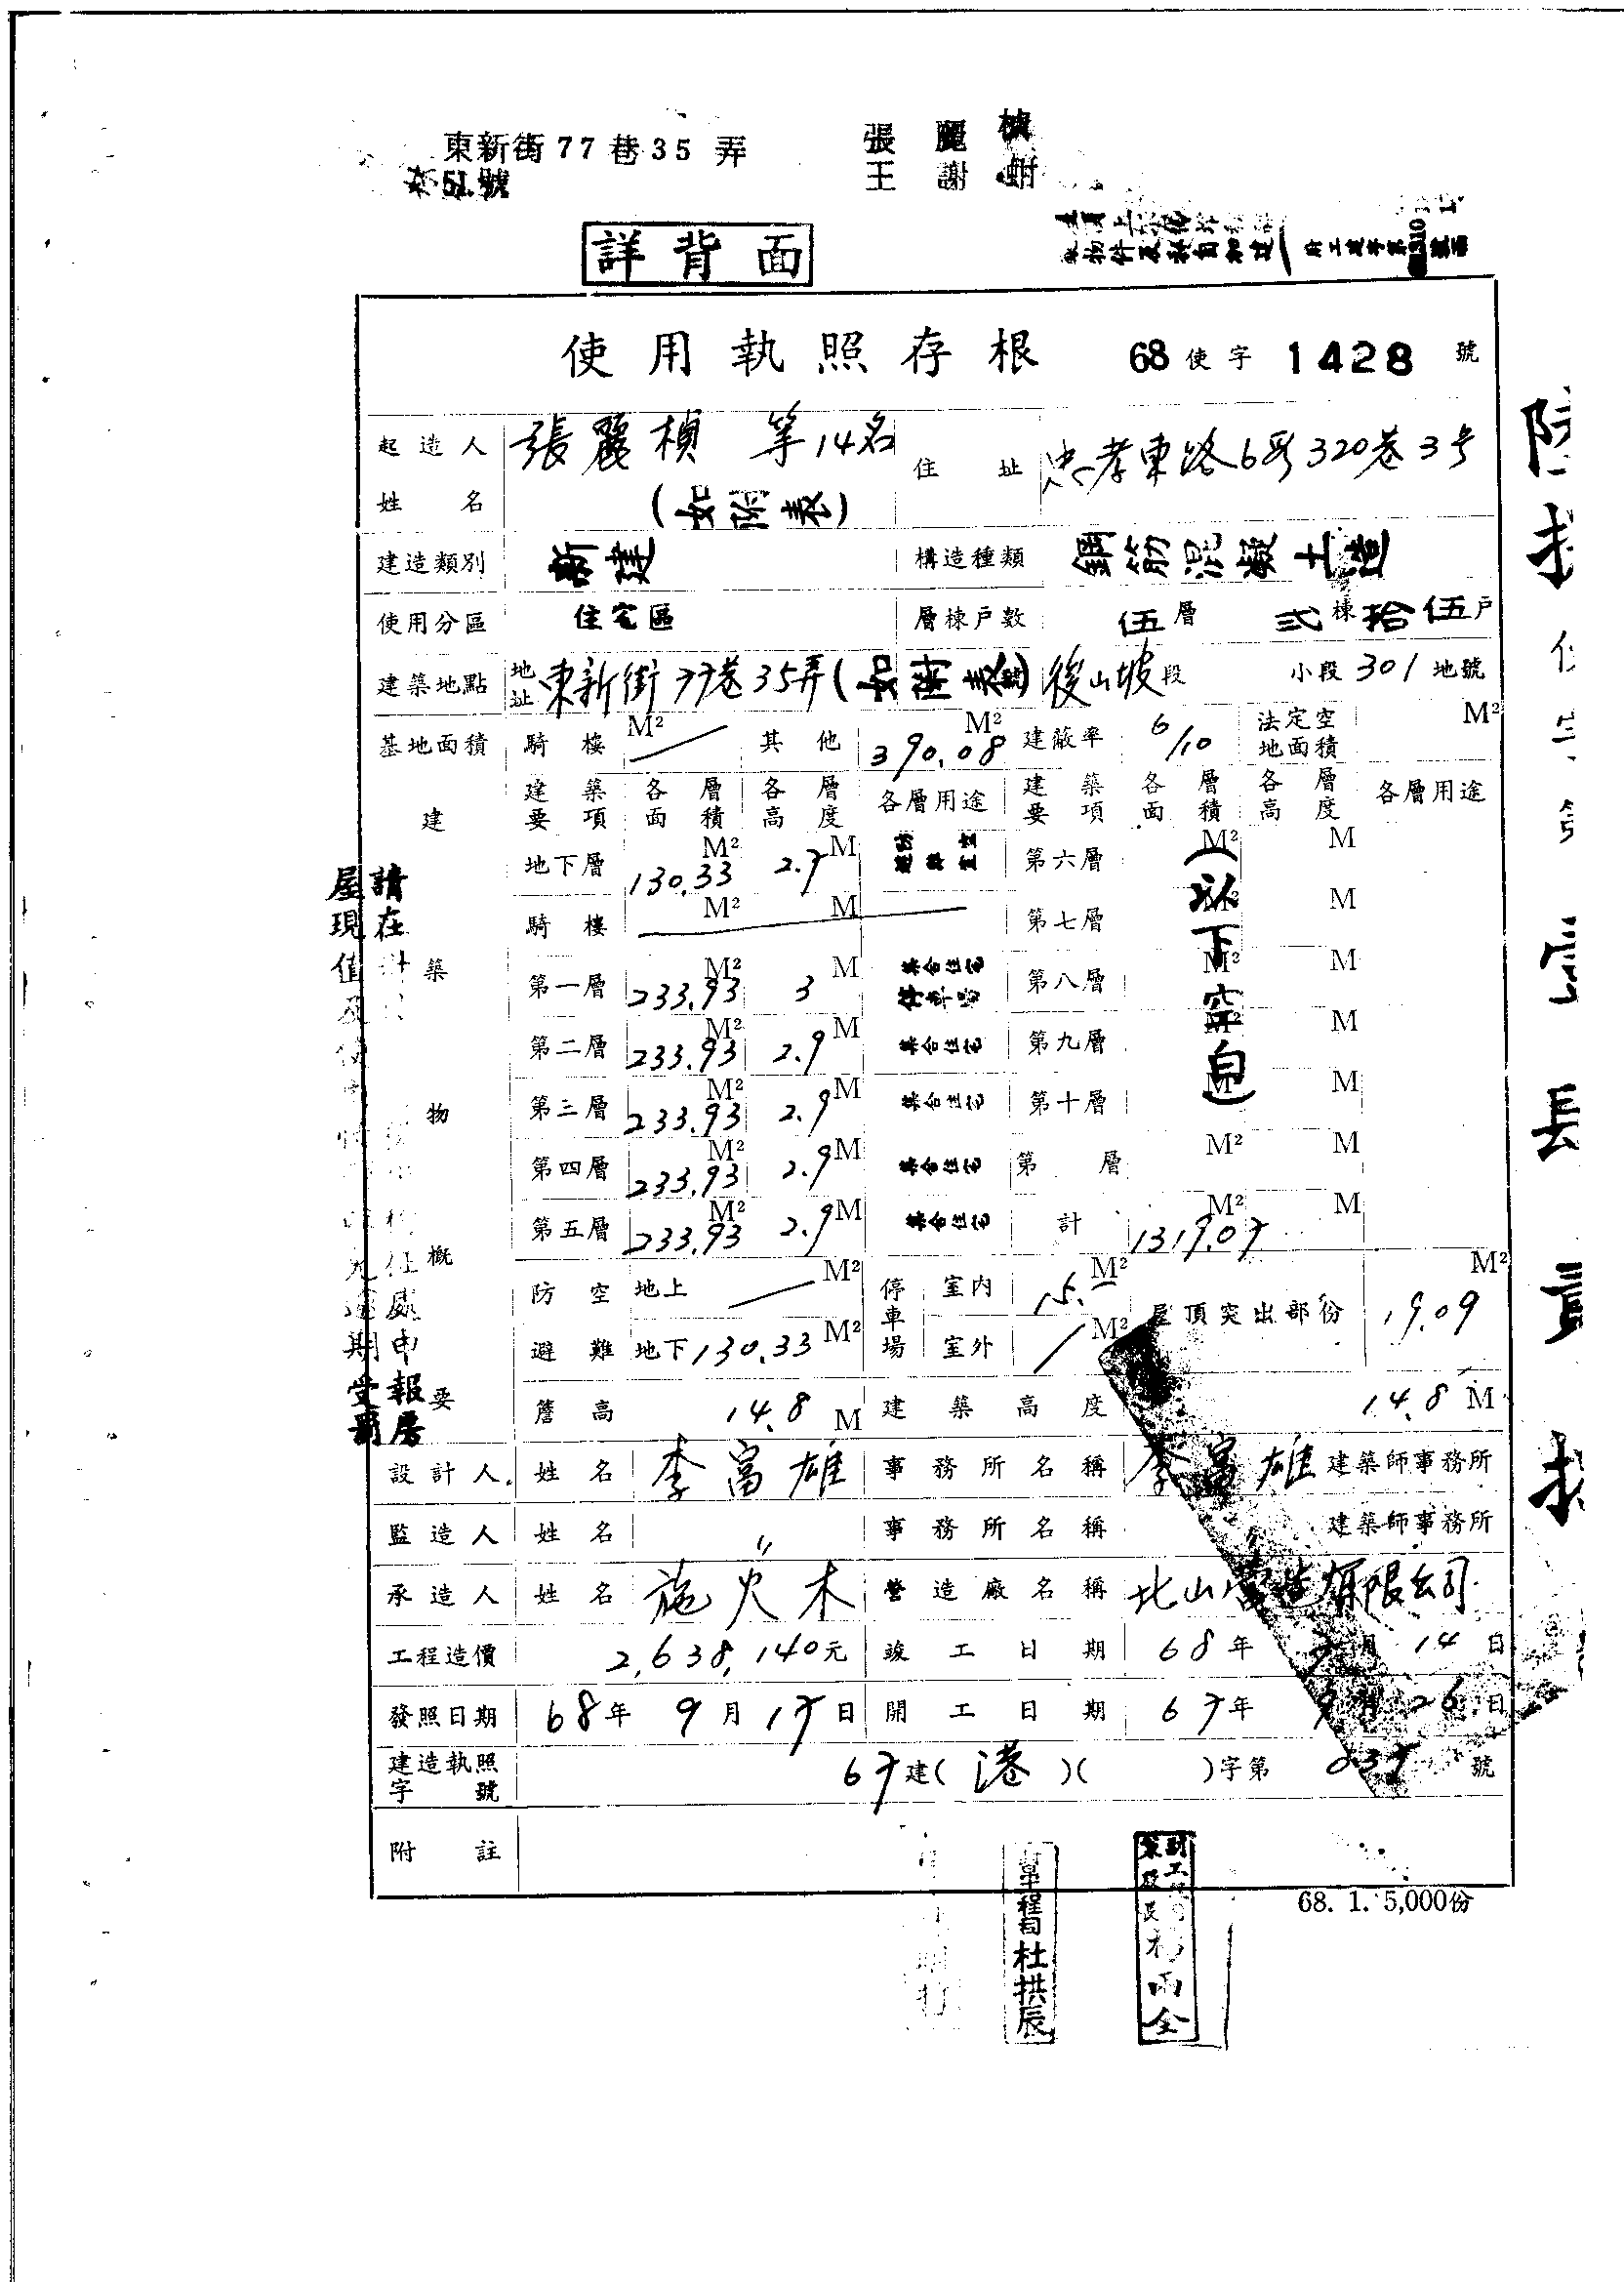 東新街77巷35弄
51號
張麗楨
王謝
詳背面
使用執照存根 68使字1428號
起造人姓名 張麗楨 等14名 (如附表) 住址 忠孝東路6段320巷3号
建造類別 新建 構造種類 鋼筋混凝土造
使用分區 住宅區 層棟戶數 伍層 弍棟拾伍戶
建築地點 地址 東新街77巷35弄(如附表) 後山坡段 小段 301 地號
基地面積 騎樓 M² 其他 390.08 M² 建蔽率 6/10 法定空地面積 M²
建築物概要 建築要項 各層面積 各層高度 各層用途 建築要項 各層面積 各層高度 各層用途
地下層 130.33 M² 2.7 M 第六層 M² M
騎樓 M² M 第七層 M² M
第一層 233.93 M² 3 M 集合住宅 停車場 第八層 M² M
第二層 233.93 M² 2.9 M 集合住宅 第九層 M² M
第三層 233.93 M² 2.9 M 集合住宅 第十層 M² M
第四層 233.93 M² 2.9 M 集合住宅 第 層 M² M
第五層 233.93 M² 2.9 M 集合住宅 計 1319.07 M² M
(以下空白)
防空避難 地上 M² 停車場 室內 15. M² 屋頂突出部份 19.09 M²
地下 130.33 M² 室外 M²
簷高 14.8 M 建築高度 14.8 M
設計人 姓名 李富雄 事務所名稱 李富雄 建築師事務所
監造人 姓名 〃 事務所名稱 建築師事務所
承造人 姓名 施火木 營造廠名稱 北山營造有限公司
工程造價 2,638,140元 竣工日期 68年 月14日
發照日期 68年9月17日 開工日期 67年9月26日
建造執照字號 67建(港)( )字第 037 號
附註
68. 1. 5,000份
工程司杜拱辰